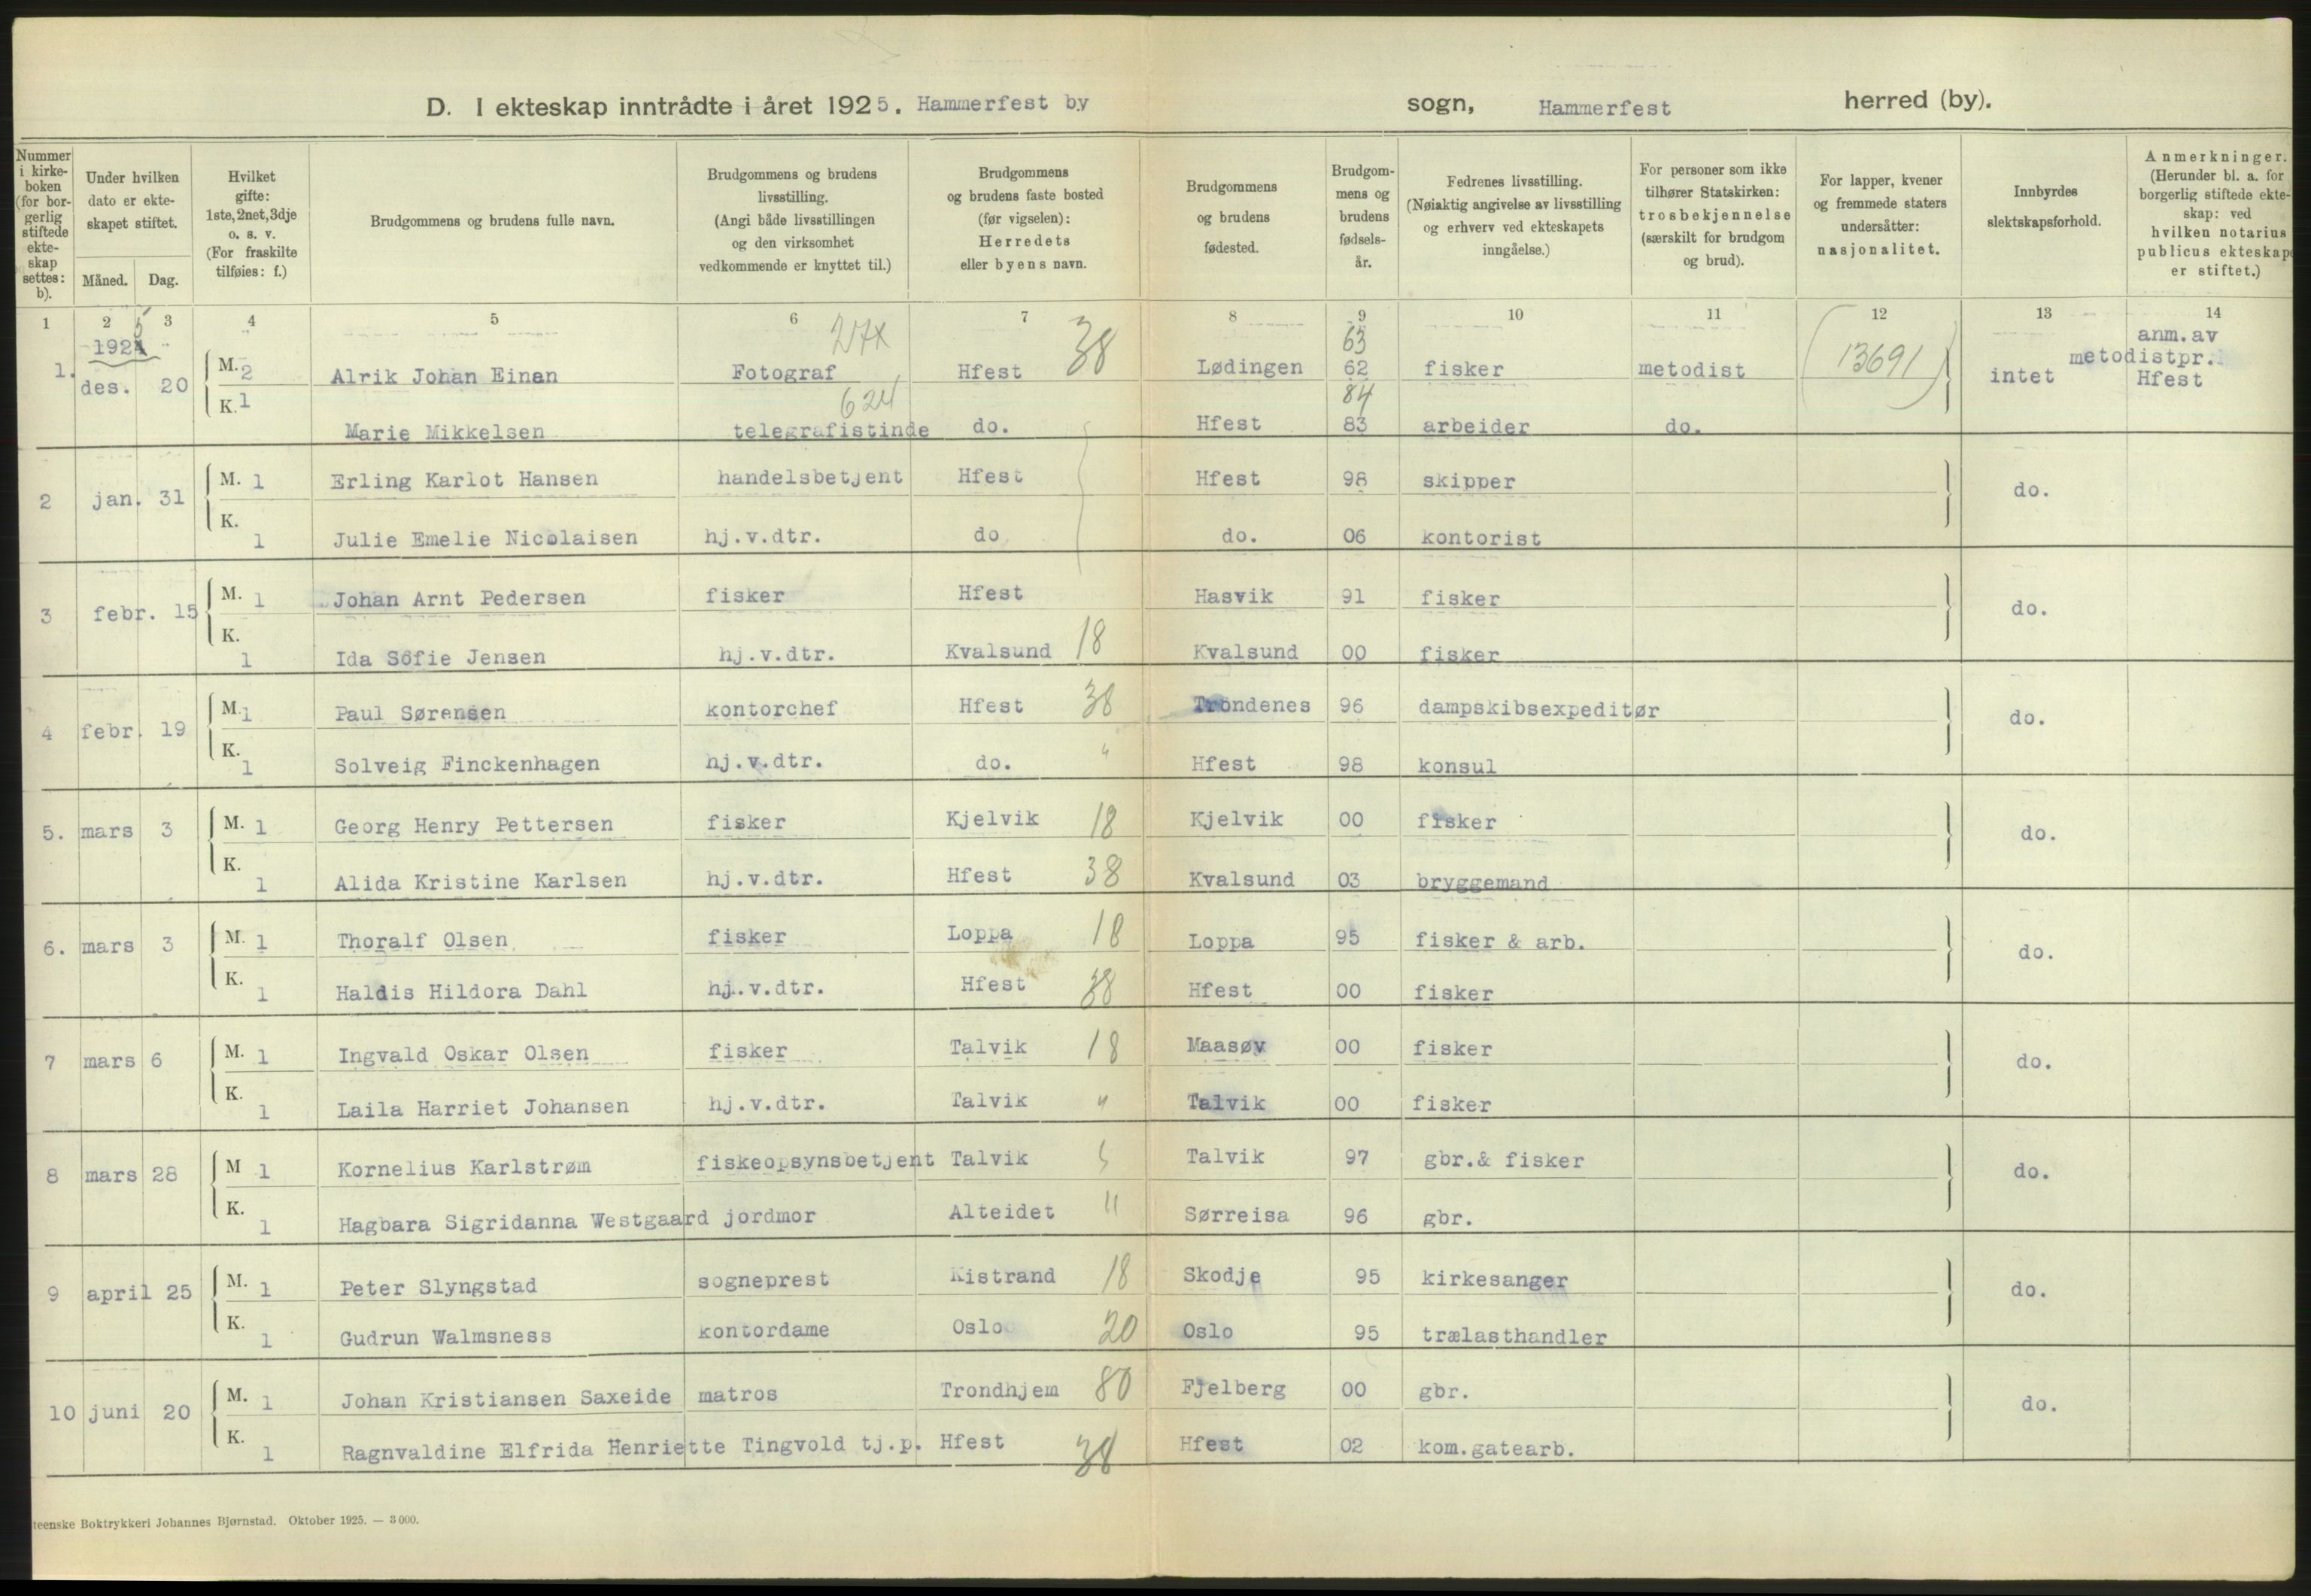 D. I ekteskap inntrådte i året 1925. Hammerfest by sogn, Hammerfest herred (by).
Nummer i kirke-boken (for bor-gerlig stiftede ekte-skap settes: b).
Under hvilken dato er ekte-skapet stiftet.
Måned. Dag.
Hvilket gifte: 1ste, 2net, 3dje o. s. v. (For fraskilte tilføies: f.)
Brudgommens og brudens fulle navn.
Brudgommens og brudens livsstilling. (Angi både livsstillingen og den virksomhet vedkommende er knyttet til.)
Brudgommens og brudens faste bosted (før vigselen): Herredets eller byens navn.
Brudgommens og brudens fødested.
Brudgom-mens og brudens fødsels-år.
Fedrenes livsstilling. (Nøiaktig angivelse av livsstilling og erhverv ved ekteskapets inngåelse.)
For personer som ikke tilhører Statskirken: trosbekjennelse (særskilt for brudgom og brud).
For lapper, kvener og fremmede staters undersåtter: nasjonalitet.
Innbyrdes slektskapsforhold.
Anmerkninger. (Herunder bl. a. for borgerlig stiftede ekte-skap: ved hvilken notarius publicus ekteskap er stiftet.)
1 2 3 4 5 6 7 8 9 10 11 12 13 14
1924 5
1. des. 20 M. 2 Alrik Johan Einan Fotograf 27x Hfest 38 Lødingen 63 62 fisker metodist 13691 intet anm.av metodistpr. Hfest
K. 1 Marie Mikkelsen 624 telegrafistinde do. Hfest 84 83 arbeider do.
2 jan. 31 M. 1 Erling Karlot Hansen handelsbetjent Hfest Hfest 98 skipper do.
K. 1 Julie Emelie Nicolaisen hj.v.dtr. do do. 06 kontorist
3 febr. 15 M. 1 Johan Arnt Pedersen fisker Hfest Hasvik 91 fisker do.
K. 1 Ida Sofie Jensen hj.v.dtr. Kvalsund 18 Kvalsund 00 fisker
4 febr. 19 M. 1 Paul Sørensen kontorchef Hfest 38 Trondenes 96 dampskibsexpeditør do.
K. 1 Solveig Finckenhagen hj.v.dtr. do. " Hfest 98 konsul
5. mars 3 M. 1 Georg Henry Pettersen fisker Kjelvik 18 Kjelvik 00 fisker do.
K. 1 Alida Kristine Karlsen hj.v.dtr. Hfest 38 Kvalsund 03 bryggemand
6. mars 3 M. 1 Thoralf Olsen fisker Loppa 18 Loppa 95 fisker & arb. do.
K. 1 Haldis Hildora Dahl hj.v.dtr. Hfest 38 Hfest 00 fisker
7 mars 6 M. 1 Ingvald Oskar Olsen fisker Talvik 18 Maasøy 00 fisker do.
K. 1 Laila Harriet Johansen hj.v.dtr. Talvik " Talvik 00 fisker
8 mars 28 M 1 Kornelius Karlstrøm fiskeopsynsbetjent Talvik Talvik 97 gbr.& fisker do.
K. 1 Hagbara Sigridanna Westgaard jordmor Alteidet " Sørreisa 96 gbr.
9 april 25 M. 1 Peter Slyngstad sogneprest Kistrand 18 Skodje 95 kirkesanger do.
K. 1 Gudrun Walmsness kontordame Oslo 20 Oslo 95 trælasthandler
10 juni 20 M. 1 Johan Kristiansen Saxeide matros Trondhjem 80 Fjelberg 00 gbr. do.
K. 1 Ragnvaldine Elfrida Henriette Tingvold tj.p. Hfest 38 Hfest 02 kom.gatearb.
teenske Boktrykkeri Johannes Bjørnstad. Oktober 1925. — 3000.